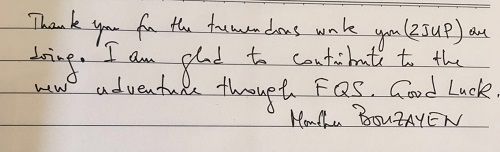 Thank you for the tremendous work you (ZJUP) are
doing. I am glad to contribute to the
new adventure through FQS. Good Luck.
Mondher BOUZAYEN